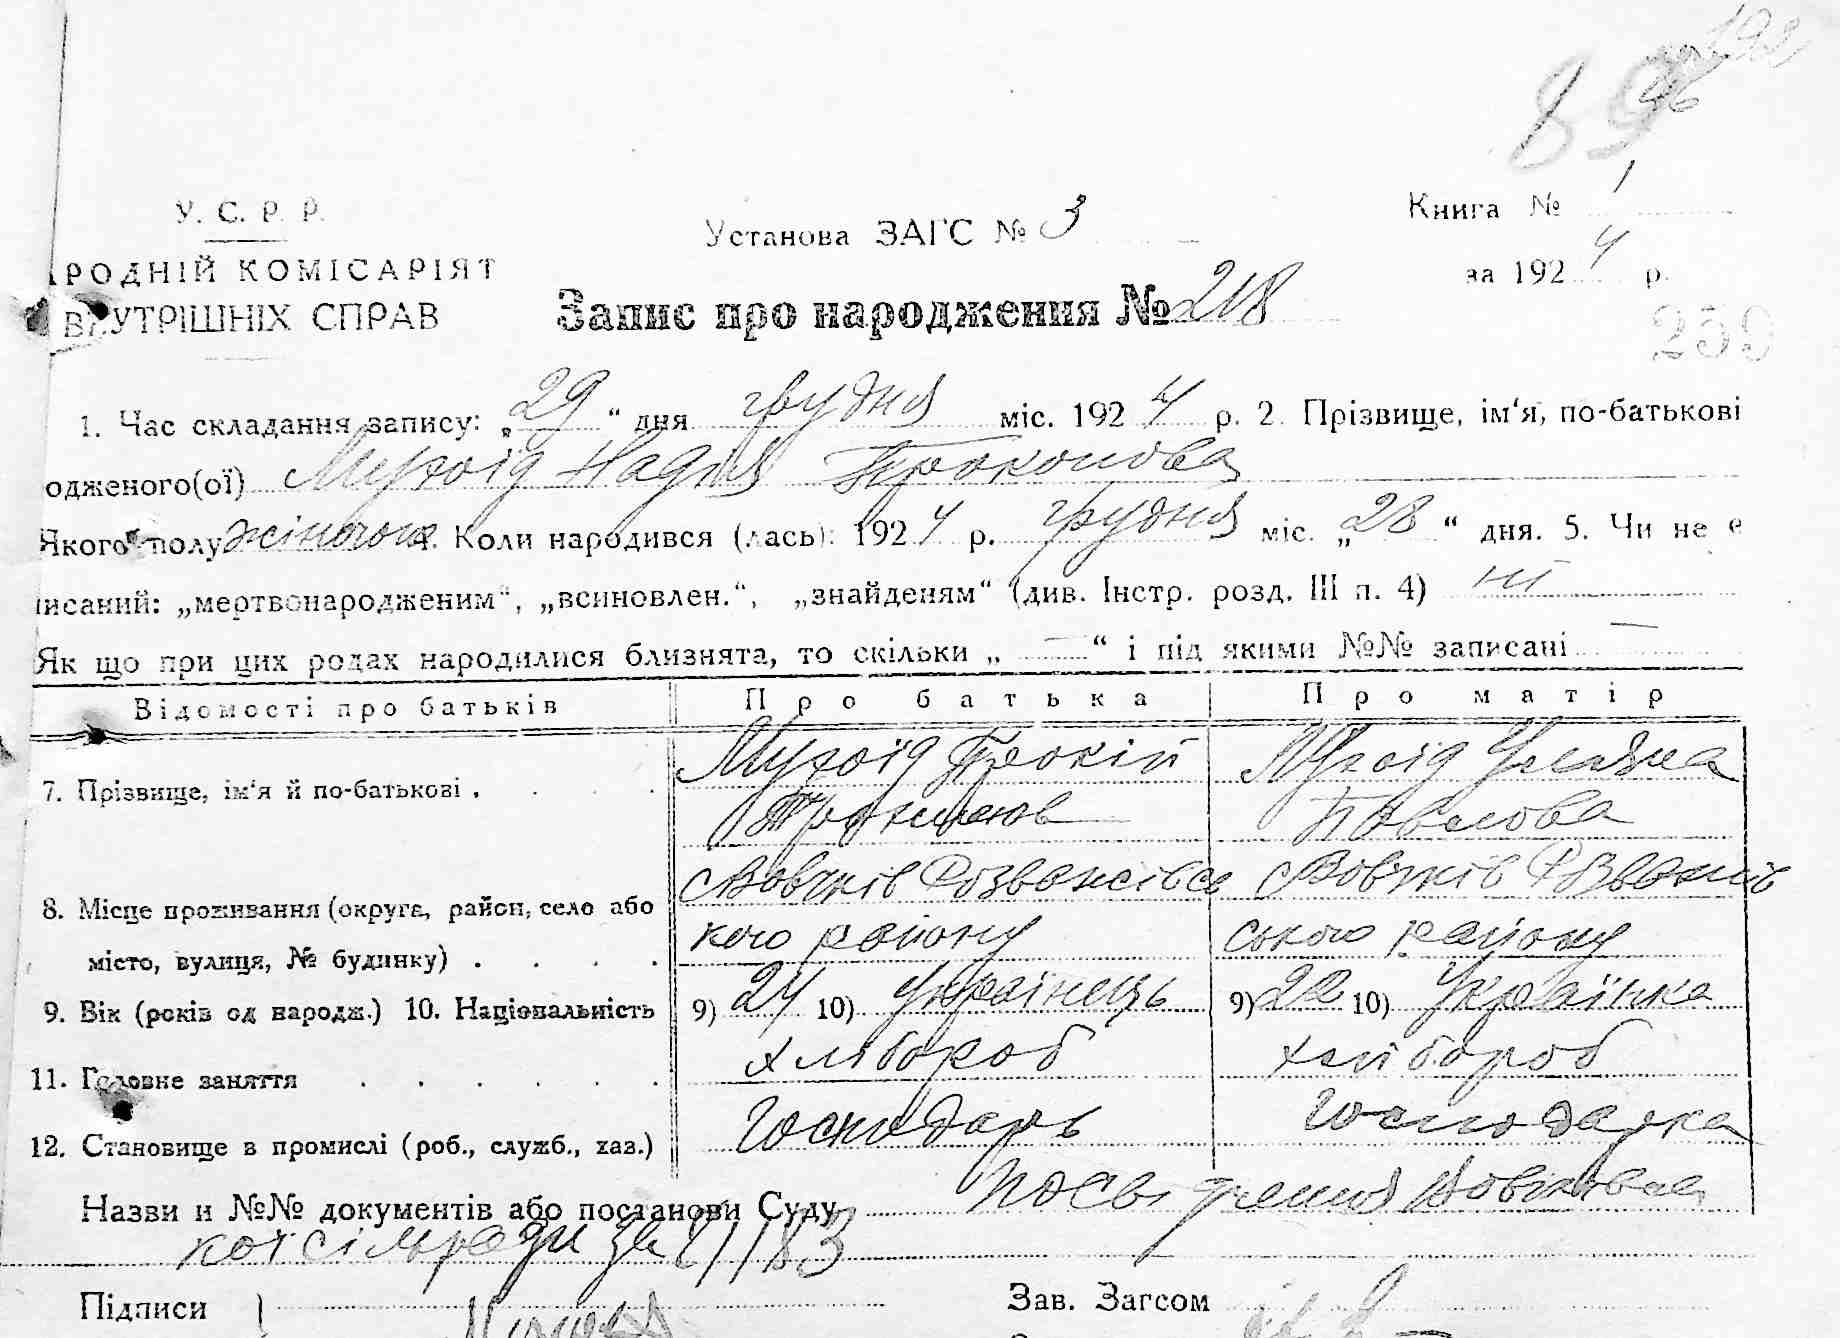 89
У. С. Р. Р.
Установа ЗАГС № 3
Книга № 1
РОДНІЙ КОМІСАРІЯТ
за 1924 р.
ВНУТРІШНІХ СПРАВ
Запис про народження № 218
259
1. Час складання запису: „29“ дня грудня міс. 1924 р. 2. Прізвище, ім‘я, по-батькові
одженого(ої) Мухоїд Надія Прокопова
Якого полу жіночого 4. Коли народився (лась): 1924 р. грудня міс. „28“ дня. 5. Чи не є
исаний: „мертвонародженим“, „всиновлен.“, „знайденям“ (див. Інстр. розд. III п. 4) ні
Як що при цих родах народилися близнята, то скільки „—“ і під якими №№ записані —
Відомості про батьків
Про батька
Про матір
7. Прізвище, ім‘я й по-батькові
Мухоїд Прокіп
Мухоїд Уляна
Павлова
8. Місце проживання (округа, район, село або місто, вулиця, № будинку)
с Вовчків Розважівсь
кого району
с Вовчків Розважів
ського району
9. Вік (років од народж.) 10. Національність
9) 24 10) Українець
9) 22 10) Українка
11. Головне заняття
хлібороб
хлібороб
12. Становище в промислі (роб., служб., хаз.)
Господарь
Господарка
Назви и №№ документів або постанови Суду
кої сільради за
Підписи
Зав. Загсом